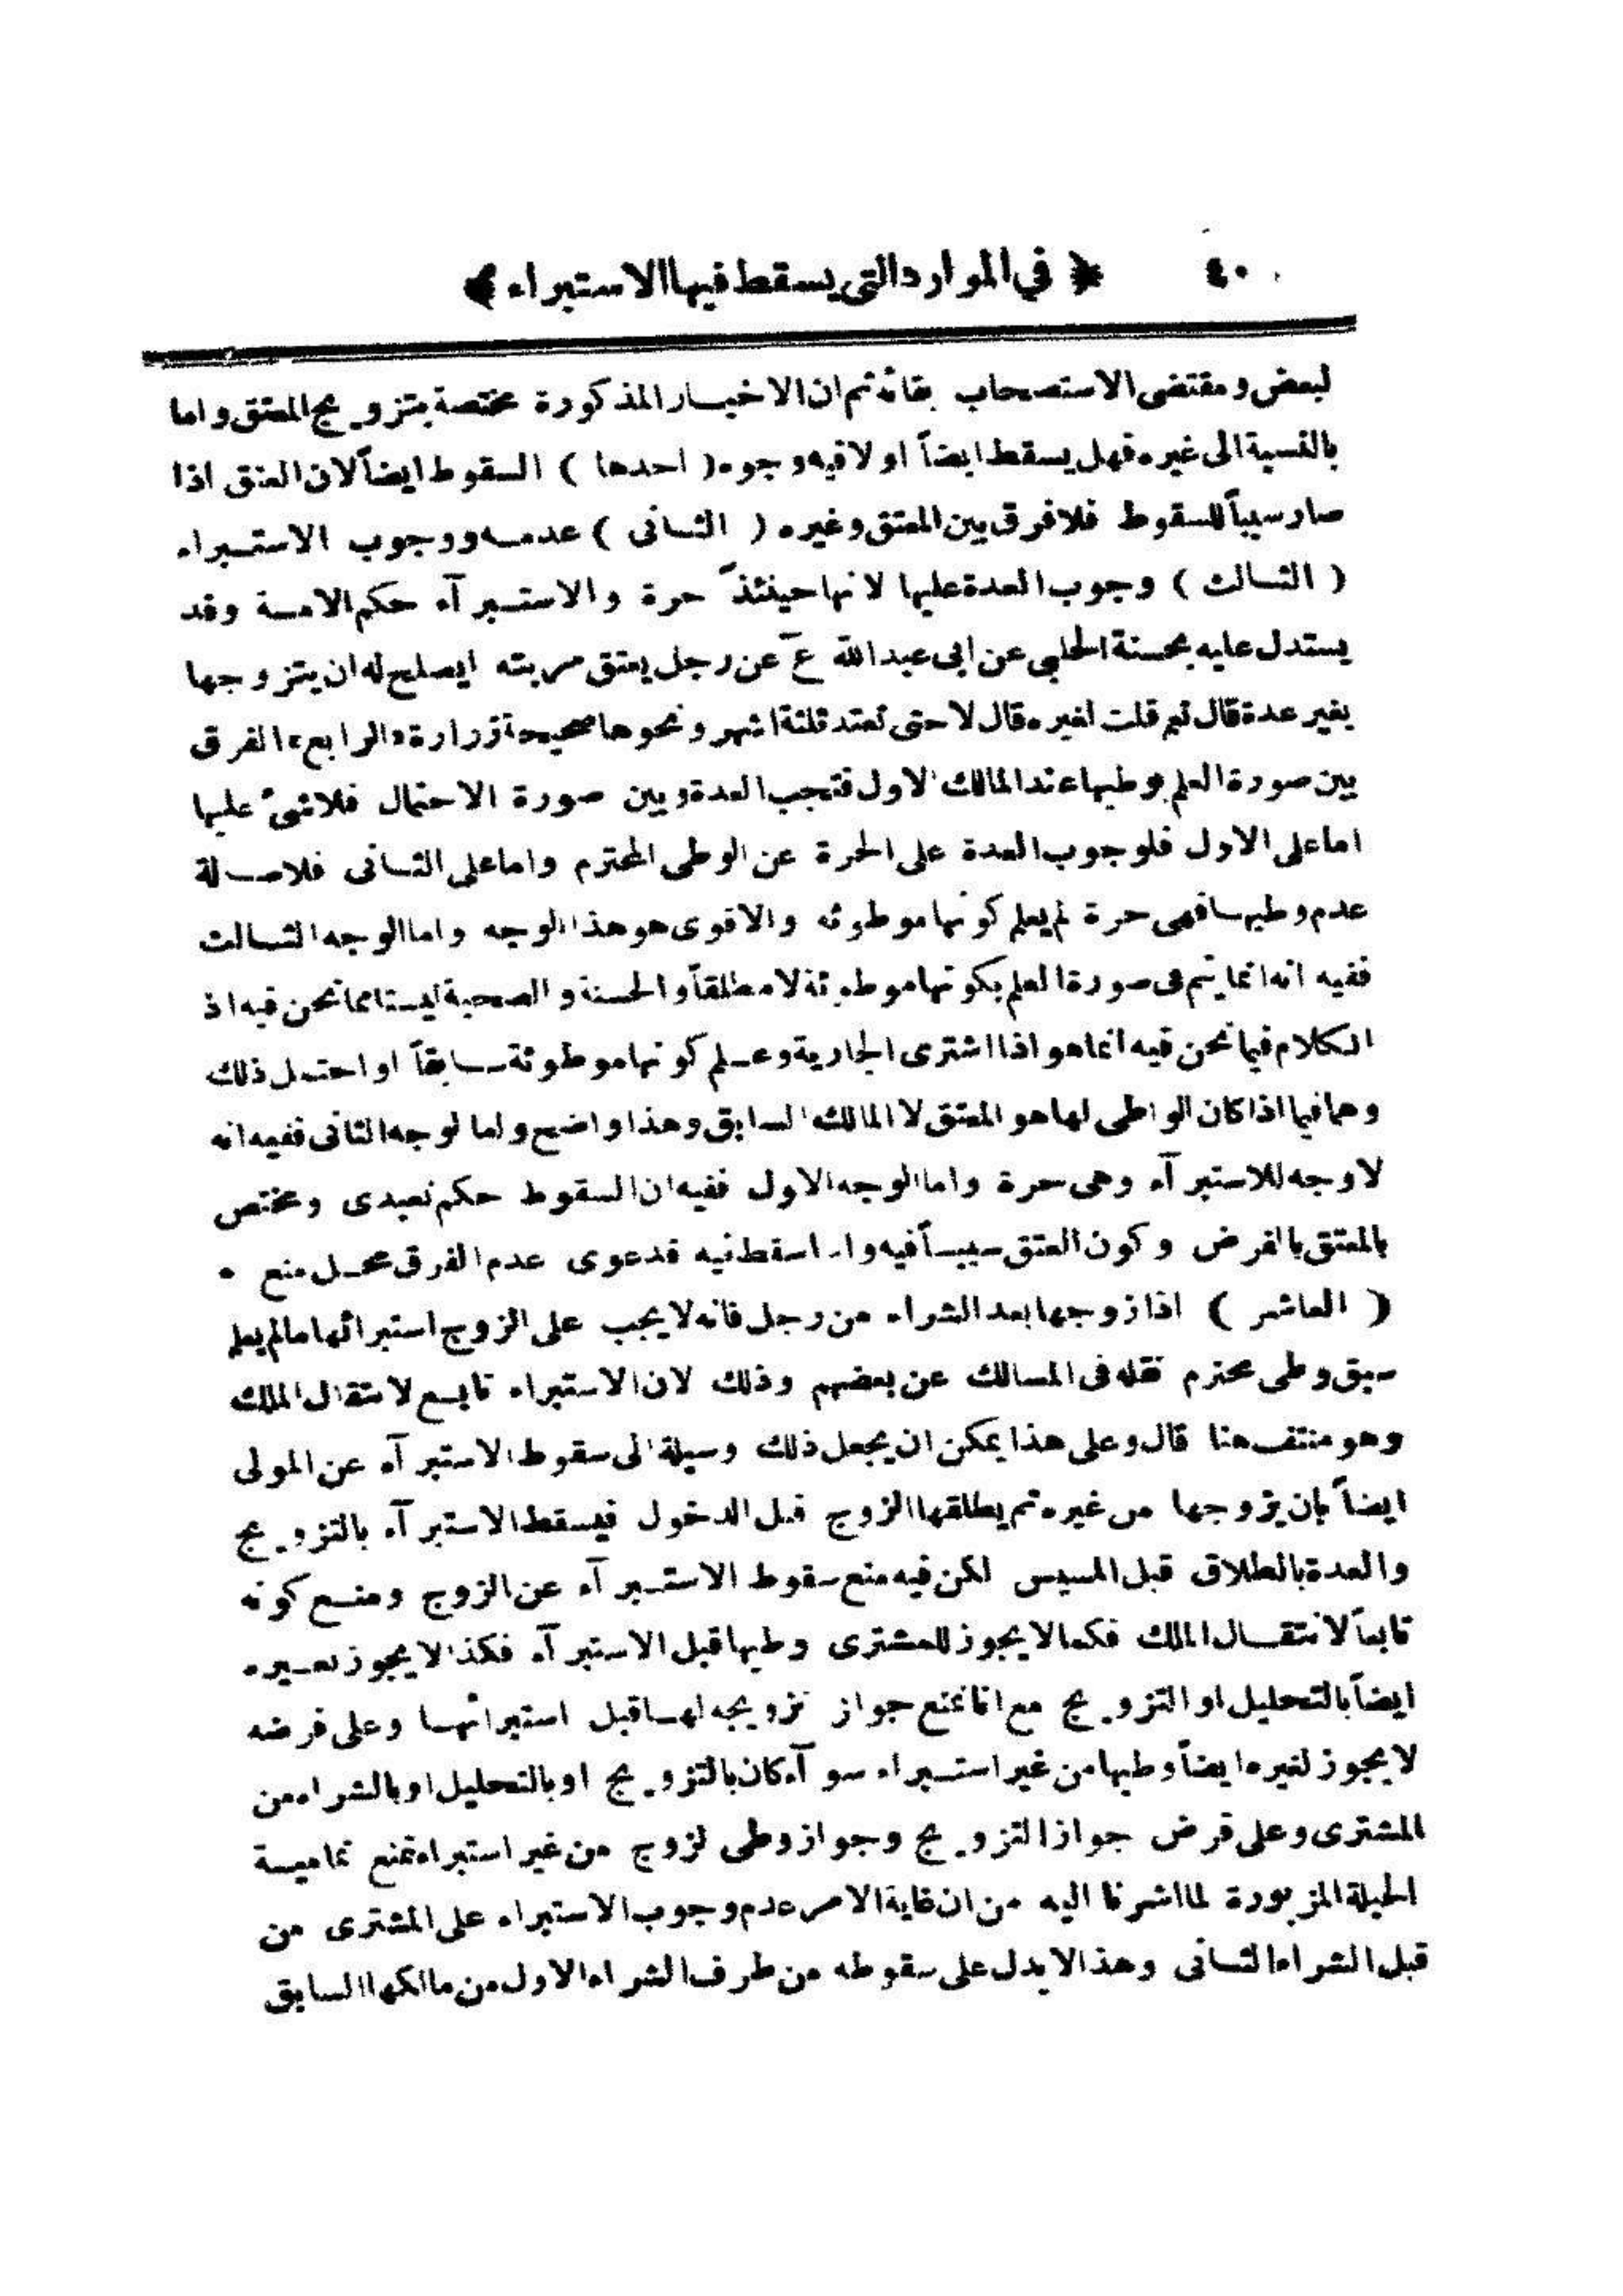 ٤٠ ﴿ في الموارد التي يسقط فيها الاستبراء ﴾
لبعض ومقتضى الاستصحاب بقائه ثم ان الاخبار المذكورة مختصة بتزويج المعتق واما
بالنسبة الى غيره فهل يسقط ايضاً او لا فيه وجوه ( احدها ) السقوط ايضاً لان العتق اذا
صار سبباً للسقوط فلا فرق بين المعتق وغيره ( الثانى ) عدمه ووجوب الاستبراء
( الثالث ) وجوب العدة عليها لانها حينئذ حرة والاستبرآء حكم الامة وقد
يستدل عليه بحسنة الحلبي عن ابى عبدالله ع عن رجل يعتق سريته ايصلح له ان يتزوجها
بغير عدة قال نعم قلت لغيره قال لا حتى تعتد ثلثة اشهر ونحوها صحيحة زرارة «الرابع» الفرق
بين صورة العلم بوطيها عند المالك الاول فتجب العدة وبين صورة الاحتمال فلا شئ عليها
اما على الاول فلوجوب العدة على الحرة عن الوطى المحترم واما على الثانى فلاصالة
عدم وطيها فهى حرة لم يعلم كونها موطوئه والاقوى هو هذا الوجه واما الوجه الثالث
ففيه انه انما يتم فى صورة العلم بكونها موطوئة لا مطلقاً والحسنة والصحيحة ليستا مما نحن فيه اذ
الكلام فيما نحن فيه انما هو اذا اشترى الجارية وعلم كونها موطوئة سابقاً او احتمل ذلك
وهما فيما اذا كان الواطى لها هو المعتق لا المالك السابق وهذا واضح واما لوجه الثانى ففيه انه
لا وجه للاستبرآء وهى حرة واما الوجه الاول ففيه ان السقوط حكم تعبدى ومختص
بالمعتق بالفرض وكون العتق سبباً فيه واسقط فيه فدعوى عدم الفرق محل منع .
( العاشر ) اذا زوجها بعد الشراء من رجل فانه لا يجب على الزوج استبرائها ما لم يعلم
سبق وطى محترم نقله فى المسالك عن بعضهم وذلك لان الاستبراء تابع لانتقال الملك
وهو منتف هنا قال وعلى هذا يمكن ان يجعل ذلك وسيلة الى سقوط الاستبرآء عن المولى
ايضاً بان يزوجها من غيره ثم يطلقها الزوج قبل الدخول فيسقط الاستبرآء بالتزويج
والعدة بالطلاق قبل المسيس لكن فيه منع سقوط الاستبرآء عن الزوج ومنع كونه
تابعاً لانتقال الملك فكما لا يجوز للمشترى وطيها قبل الاستبرآء فكذا لا يجوز لغيره
ايضاً بالتحليل او التزويج مع انا نمنع جواز تزويجه لها قبل استبرائها وعلى فرضه
لا يجوز لغيره ايضاً وطيها من غير استبراء سوآء كان بالتزويج او بالتحليل او بالشراء من
المشترى وعلى فرض جواز التزويج وجواز وطى لزوج من غير استبراء نمنع تمامية
الحيلة المزبورة لما اشرنا اليه من ان غاية الامر عدم وجوب الاستبراء على المشترى من
قبل الشراء الثانى وهذا لا يدل على سقوطه من طرف الشراء الاول من مالكها السابق